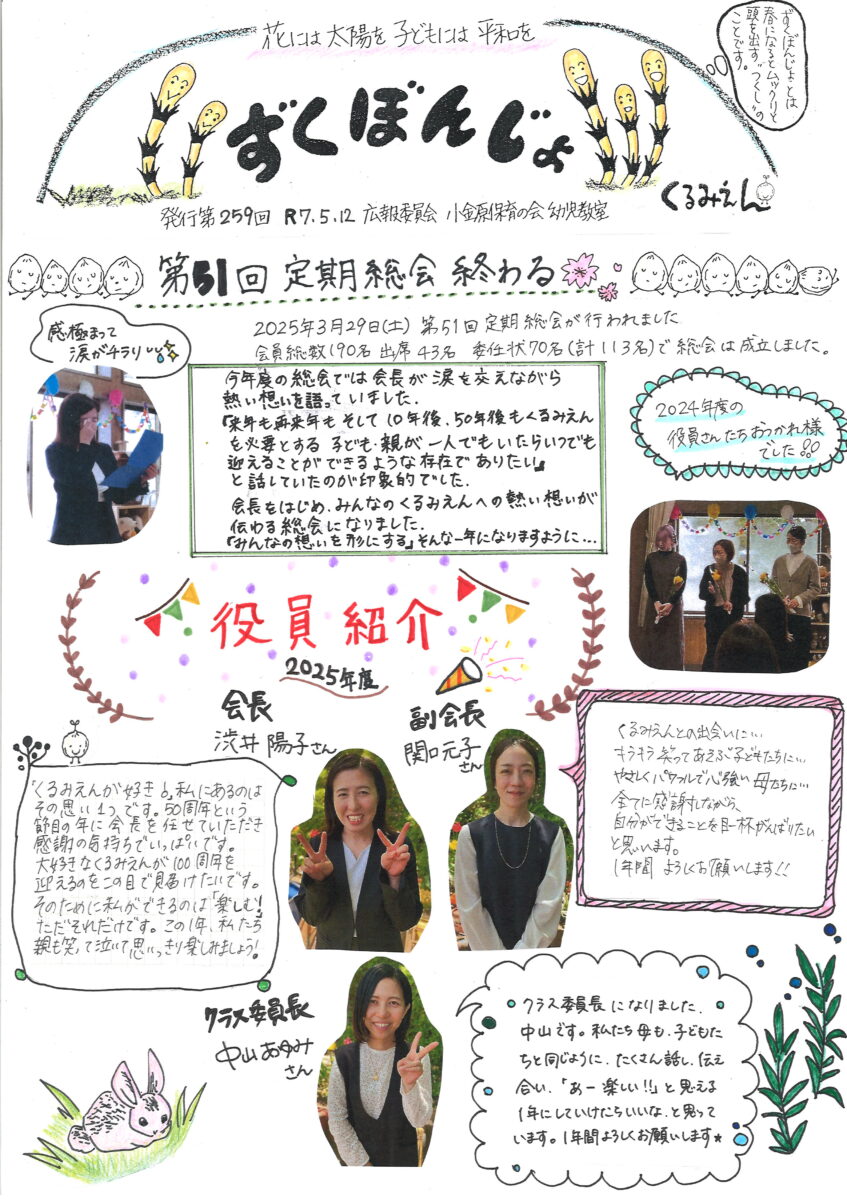 花には太陽を子どもには平和を
ずくぼんじょとは
春になるとムックリと
頭を出す"つくし"の
ことです。
ずくぼんじょ
くるみえん
発行第259回 R7.5.12 広報委員会 小金原保育の会幼児教室
第51回 定期総会 終わる
感極まって
涙がチラリ
2025年3月29日(土) 第51回定期総会が行われました
会員総数190名 出席43名 委任状70名(計113名)で総会は成立しました。
今年度の総会では会長が涙を交えながら
熱い想いを語っていました.
『来年も再来年もそして10年後、50年後もくるみえん
を必要とする子ども・親が一人でもいたらいつでも
迎えることができるような存在でありたい』
と話していたのが印象的でした.
会長をはじめ、みんなのくるみえんへの熱い想いが
伝わる総会になりました.
『みんなの想いを形にする』そんな一年になりますように…
2024年度の
役員さんたちおつかれ様
でした!!
役員紹介
2025年度
会長
渋井 陽子さん
副会長
関口元子
さん
"くるみえんが好き"。私にあるのは
その思い1つです。50周年という
節目の年に会長を任せていただき
感謝の気持ちでいっぱいです。
大好きなくるみえんが100周年を
迎えるのをこの目で見届けたいです。
そのために私ができるのは「楽しむ!」
ただそれだけです。この1年、私たち
親も笑って泣いて思いっきり楽しみましょう!
くるみえんとの出会いに…
キラキラ笑ってあえる子どもたちに…
やさしくパワフルで心強い母たちに…
全てに感謝しながら、
自分ができることを目一杯がんばりたい
と思います。
1年間 よろしくお願いします!!
クラス委員長
中山あゆみ
さん
クラス委員長になりました、
中山です。私たち母も、子どもた
ちと同じように、たくさん話し、伝え
合い、「あー楽しい!!」と思える
1年にしていけたらいいな、と思って
います。1年間よろしくお願いします★